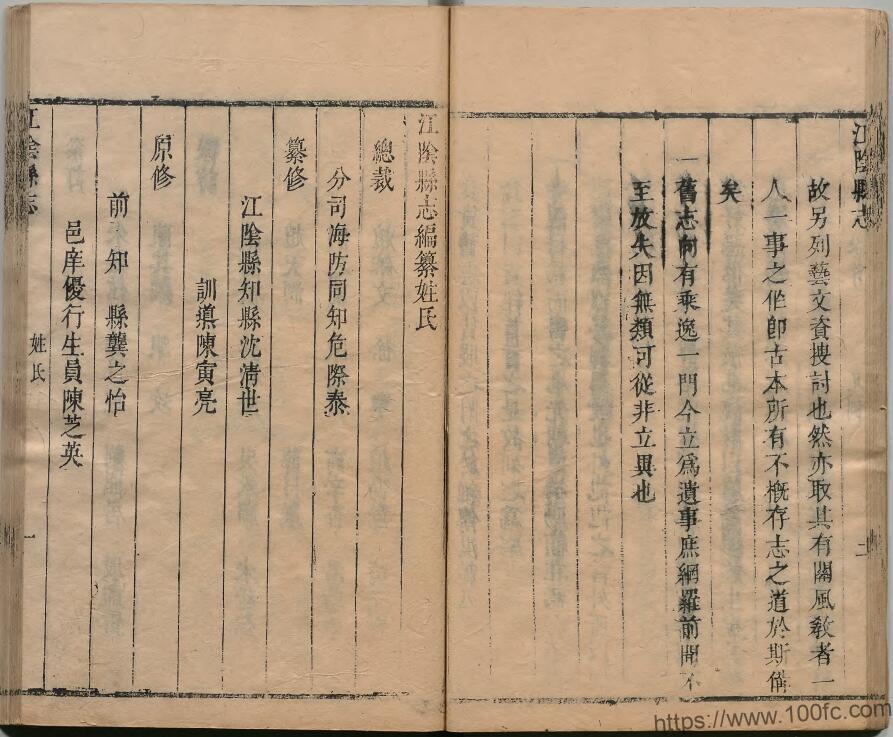 江陰縣志
二
故另列藝文資搜討也然亦取其有關風敎者一
人一事之作卽古本所有不槪存志之道於斯備
矣
一舊志向有乘逸一門今立爲遺事庶網羅前聞不
至放失因無類可從非立異也
江陰縣志編纂姓氏
總裁
分司海防同知危際泰
纂修
江陰縣知縣沈淸世
訓導陳寅亮
原修
前知縣龔之怡
邑庠優行生員陳芝英
江陰縣志
姓氏
一
https://www.100fc.com